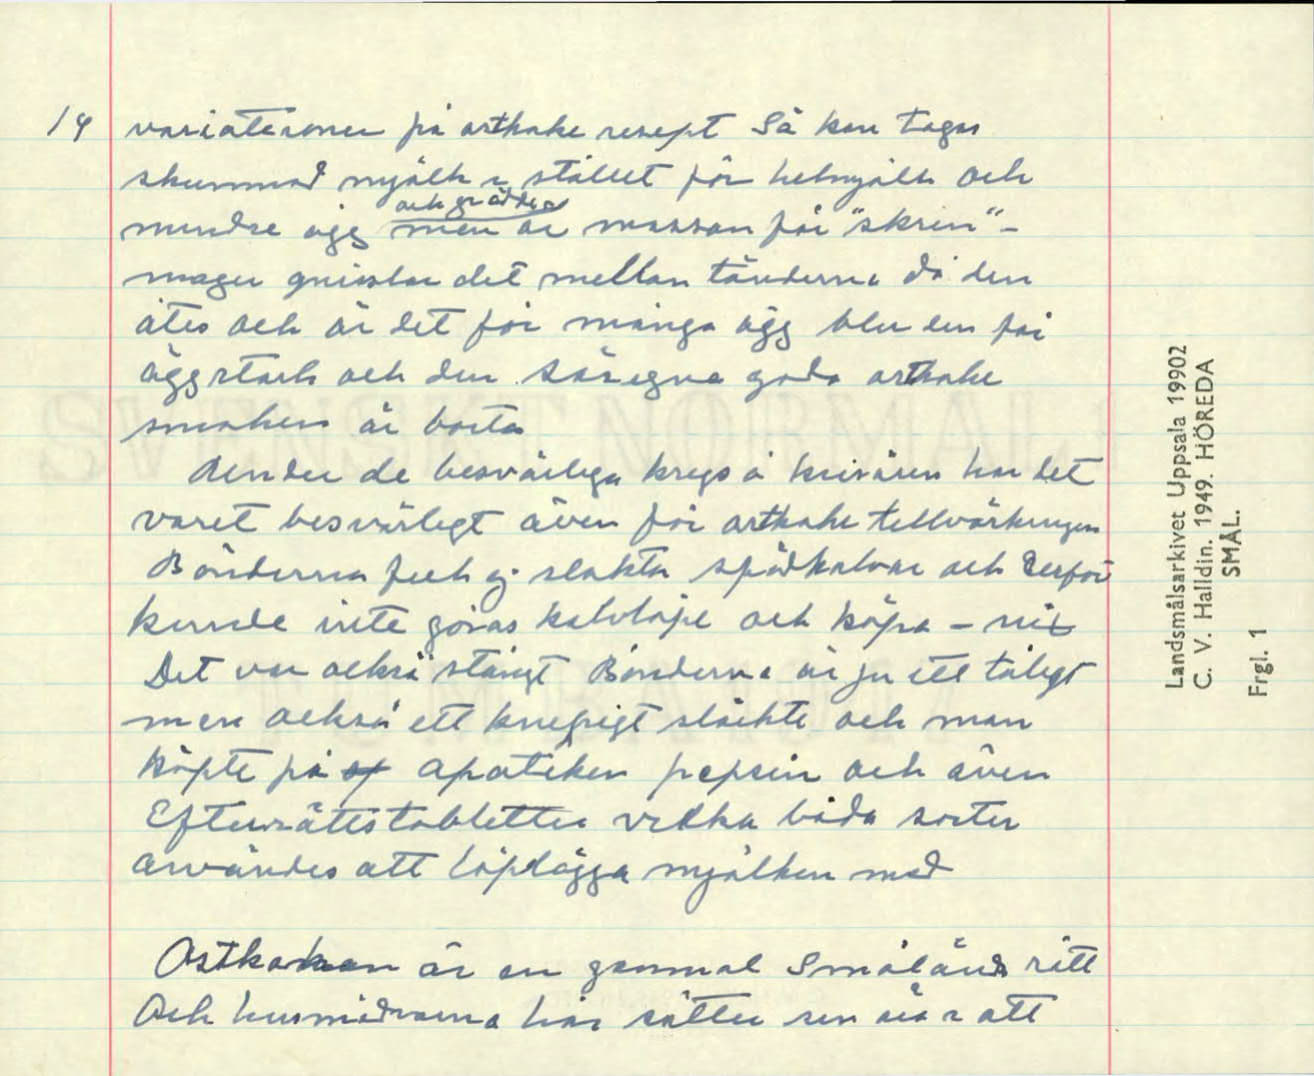 14 variationer på ostkake resept Så kan tagas
skummad mjölk i stället för helmjölk och
och grädde
mindre ägg men är massan för "skrin" -
mager gnisslar det mellan tänderna då den
ätes och är det för många ägg blir den för
äggstark och den säregna goda ostkake
smaken är borta
Under de besvärliga krigs å krisåren har det
varet besvärligt även för ostkake tillvärkningen
Bönderna fick ej slakta spädkalvar och därför
kunde inte göras kalvlöpe och köpa - nix
Det var också stängt Bönderna är ju ett tåligt
men också ett knepigt släkte och man
köpte på apoteken pepsin och även
Efterrättstabletter vilka båda sorter
användes att löplägga mjölken med
Ostkakan är en gammal Småländs rätt
Och husmödrarna här sätter sin ära i att
Landsmålsarkivet Uppsala 19902
C. V. Halldin. 1949. HÖREDA
SMÅL.
Frgl. 1
SVENSKT NORMAL
TUMBA 1947